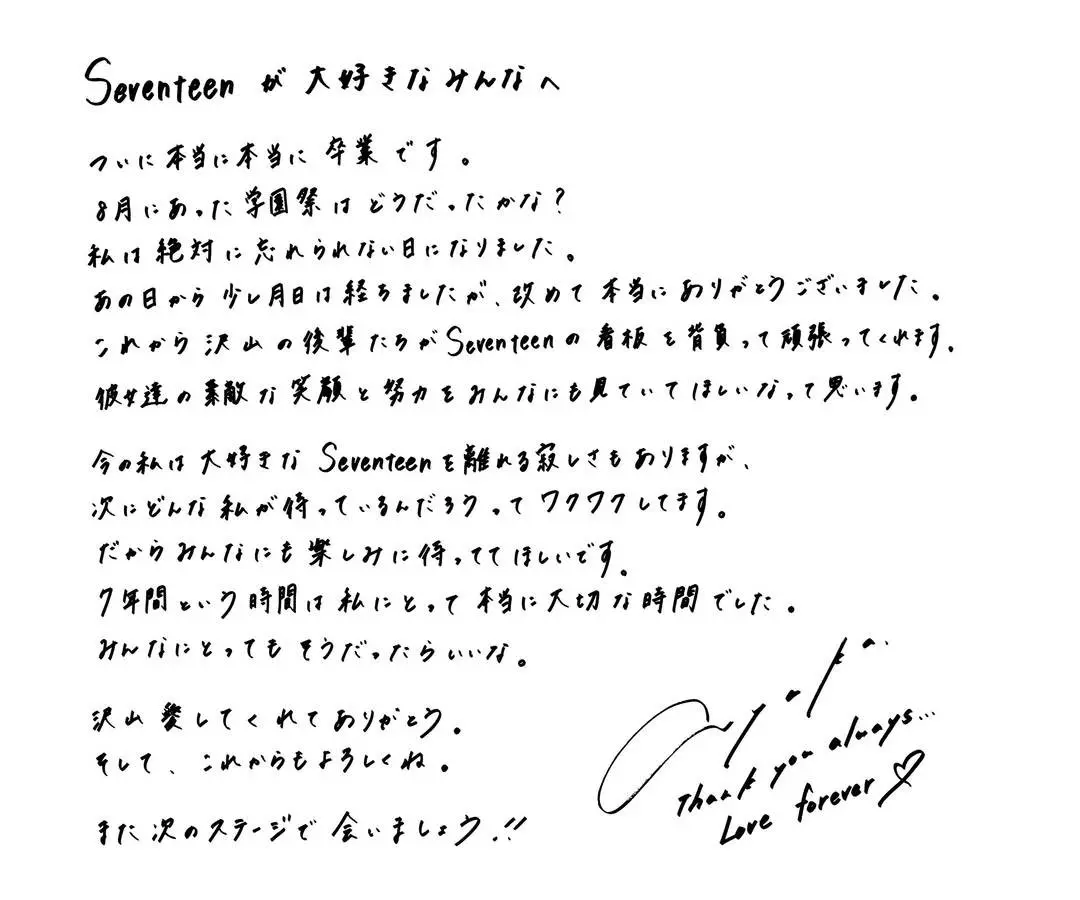 Seventeenが大好きなみんなへ
ついに本当に本当に卒業です。
8月にあった学園祭はどうだったかな?
私は絶対に忘れられない日になりました。
あの日から少し月日は経ちましたが、改めて本当にありがとうございました。
これから沢山の後輩たちがSeventeenの看板を背負って頑張ってくれます。
彼女達の素敵な笑顔と努力をみんなにも見ていてほしいなって思います。
今の私は大好きなSeventeenを離れる寂しさもありますが、
次にどんな私が待っているんだろうってワクワクしてます。
だからみんなにも楽しみに待っててほしいです。
7年間という時間は私にとって本当に大切な時間でした。
みんなにとってもそうだったらいいな。
沢山愛してくれてありがとう。
そして、これからもよろしくね。
また次のステージで会いましょう!!
Ayaka.
Thank you always...
Love forever♡